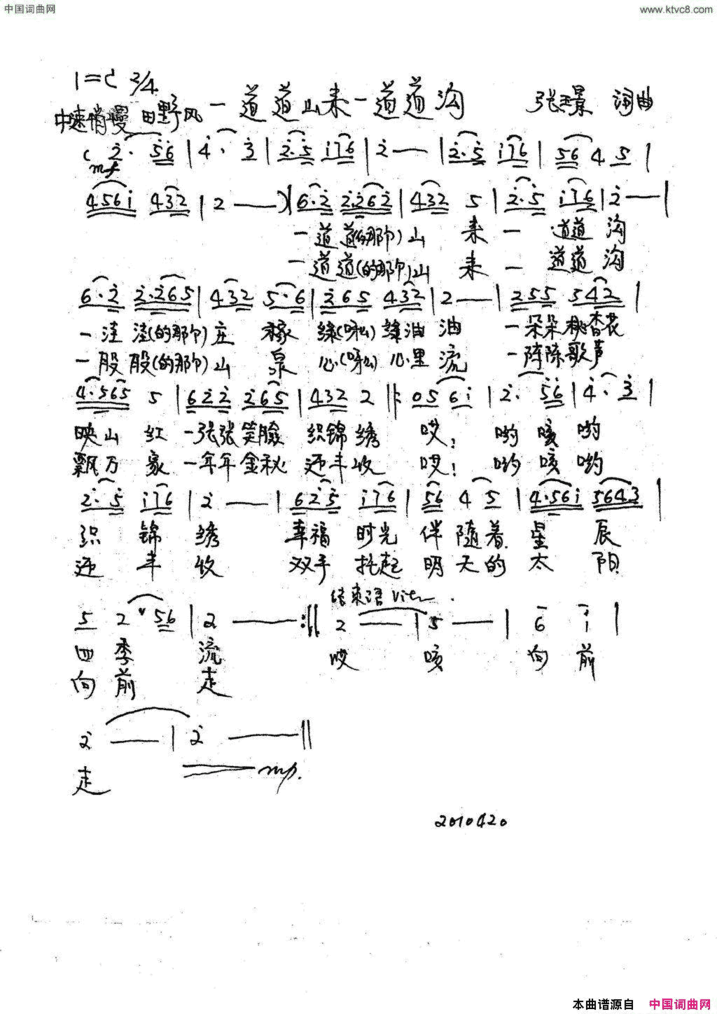 中国词曲网
www.ktvc8.com
1=C 2/4
中速稍慢 田野风
一道道山来一道道沟
词曲
mf 2· 56 | 4· 3 | 2·5 176 | 2 — | 2·5 176 | 56 4 5 |
4561 432 | 2 — ) | 6·2 2·262 | 432 5 | 2·5 176 | 2 — |
一道道(的那个)山 来 一 道道 沟
一道道(的那个)山 来 一 道道 沟
6·2 2·265 | 432 5·6 | 265 432 | 2 — | 255 542 |
一洼洼(的那个)庄 稼 绿(呀么)绿油油 一朵朵桃杏花
一股股(的那个)山 泉 心(呀么)心里 流 一阵阵歌声
4·565 5 | 622 265 | 432 2 ‖: 05 61 | 2· 56 | 4· 3 |
映山 红 一张张笑脸 织锦绣 哎! 哟 咳 哟
飘万 家 一年年金秋 还丰收 哎! 哟 咳 哟
2·5 176 | 2 — | 625 176 | 56 4 5 | 4·561 5643 |
织 锦 绣 幸福 时光 伴 随着 星 辰
还 丰 收 双手 托起 明 天的 太 阳
结束语
5 2 56 | 2 — :‖ 2 — | 5 — | 6 1 |
四 季 流 哎 咳 向 前
向 前 走
2 — | 2 — ‖
走 mp.
2010420
本曲谱源自 中国词曲网